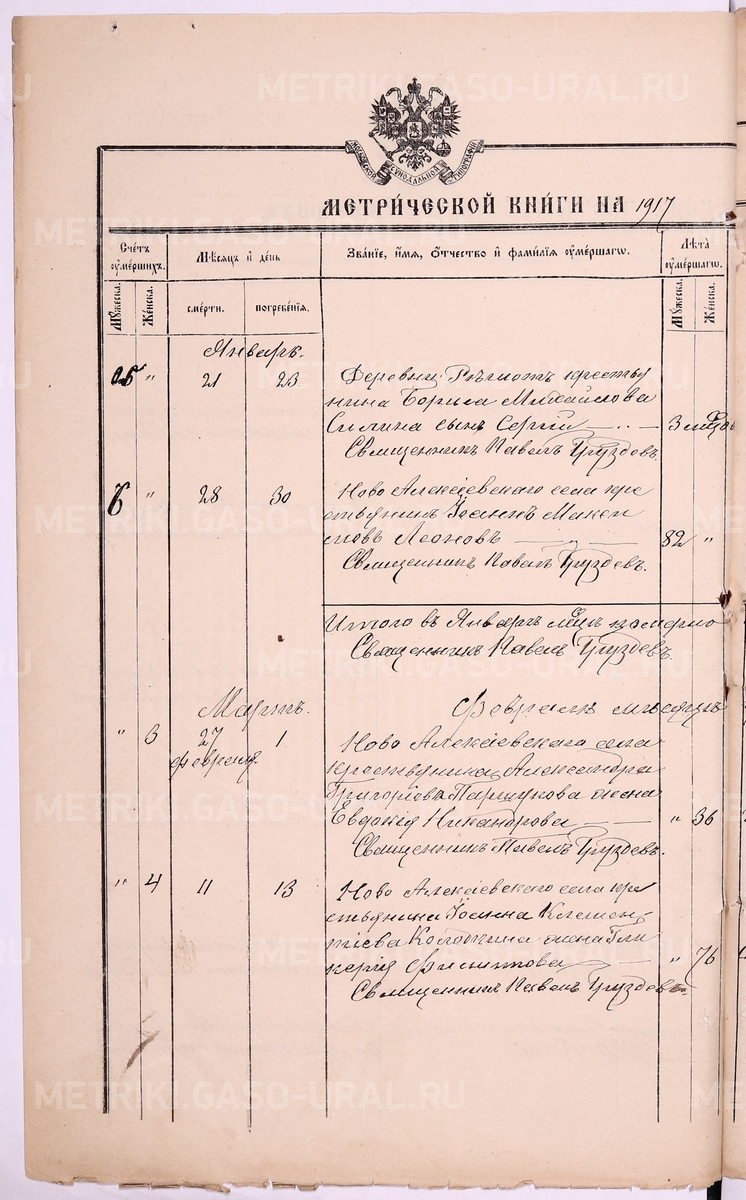 METRIKI.GASO-URAL.RU
МОСКОВСКОЙ СѴНОДАЛЬНОЙ ТИПОГРАФІИ
МЕТРИ́ЧЕСКОЙ КНИ́ГИ НА 1917
Сче́тъ ᲂу҆ме́ршихъ.
Мѣ́сяцъ и҆ де́нь
Зва́нїе, и҆́мя, ѻ҆́тчество и҆ фами́лїѧ ᲂу҆ме́ршагѡ.
Лѣ́та ᲂу҆ме́ршагѡ.
Мꙋ́жеска.
Же́нска.
сме́рти.
погребе́нїѧ.
Мꙋ́жеска.
Же́нска.
Январь.
" 21 23 Деревни крестья
нина Бориса Михайлова
Силина сынъ Сергій — 3
Священникъ Павелъ Груздевъ.
6 " 28 30 Ново Алексѣевскаго села кре
стьянинъ Іоаннъ Макси
мовъ Леоновъ — " — 82 "
Священникъ Павелъ Груздевъ.
Итого въ Январѣ мѣсяцѣ
Священникъ Павелъ Груздевъ.
Мартъ.
Февраль мѣсяцъ
" 3 27 февраля 1 Ново Алексѣевскаго села
крестьянина Александра
Григоріева Паршукова жена
Евдокія Никандрова — " 36
Священникъ Павелъ Груздевъ.
" 4 11 13 Ново Алексѣевскаго села кре
стьянина Іоанна Клемен
тіева Колоткина жена Гли
керія Филиппова — " 76
Священникъ Павелъ Груздевъ.